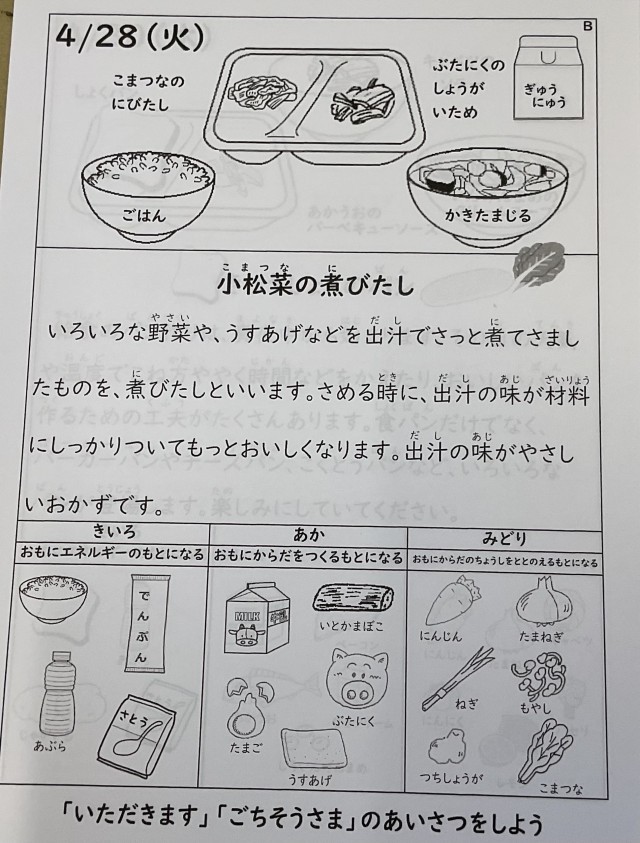 B
4/28(火)
こまつなの
にびたし
ぶたにくの
しょうが
いため
ぎゅう
にゅう
ごはん
かきたまじる
小松菜の煮びたし
いろいろな野菜や、うすあげなどを出汁でさっと煮てさまし
たものを、煮びたしといいます。さめる時に、出汁の味が材料
にしっかりついてもっとおいしくなります。出汁の味がやさし
いおかずです。
きいろ
おもにエネルギーのもとになる
でんぷん
あぶら
さとう
あか
おもにからだをつくるもとになる
MILK
いとかまぼこ
ぶたにく
たまご
うすあげ
みどり
おもにからだのちょうしをととのえるもとになる
にんじん
たまねぎ
ねぎ
もやし
つちしょうが
こまつな
「いただきます」「ごちそうさま」のあいさつをしよう